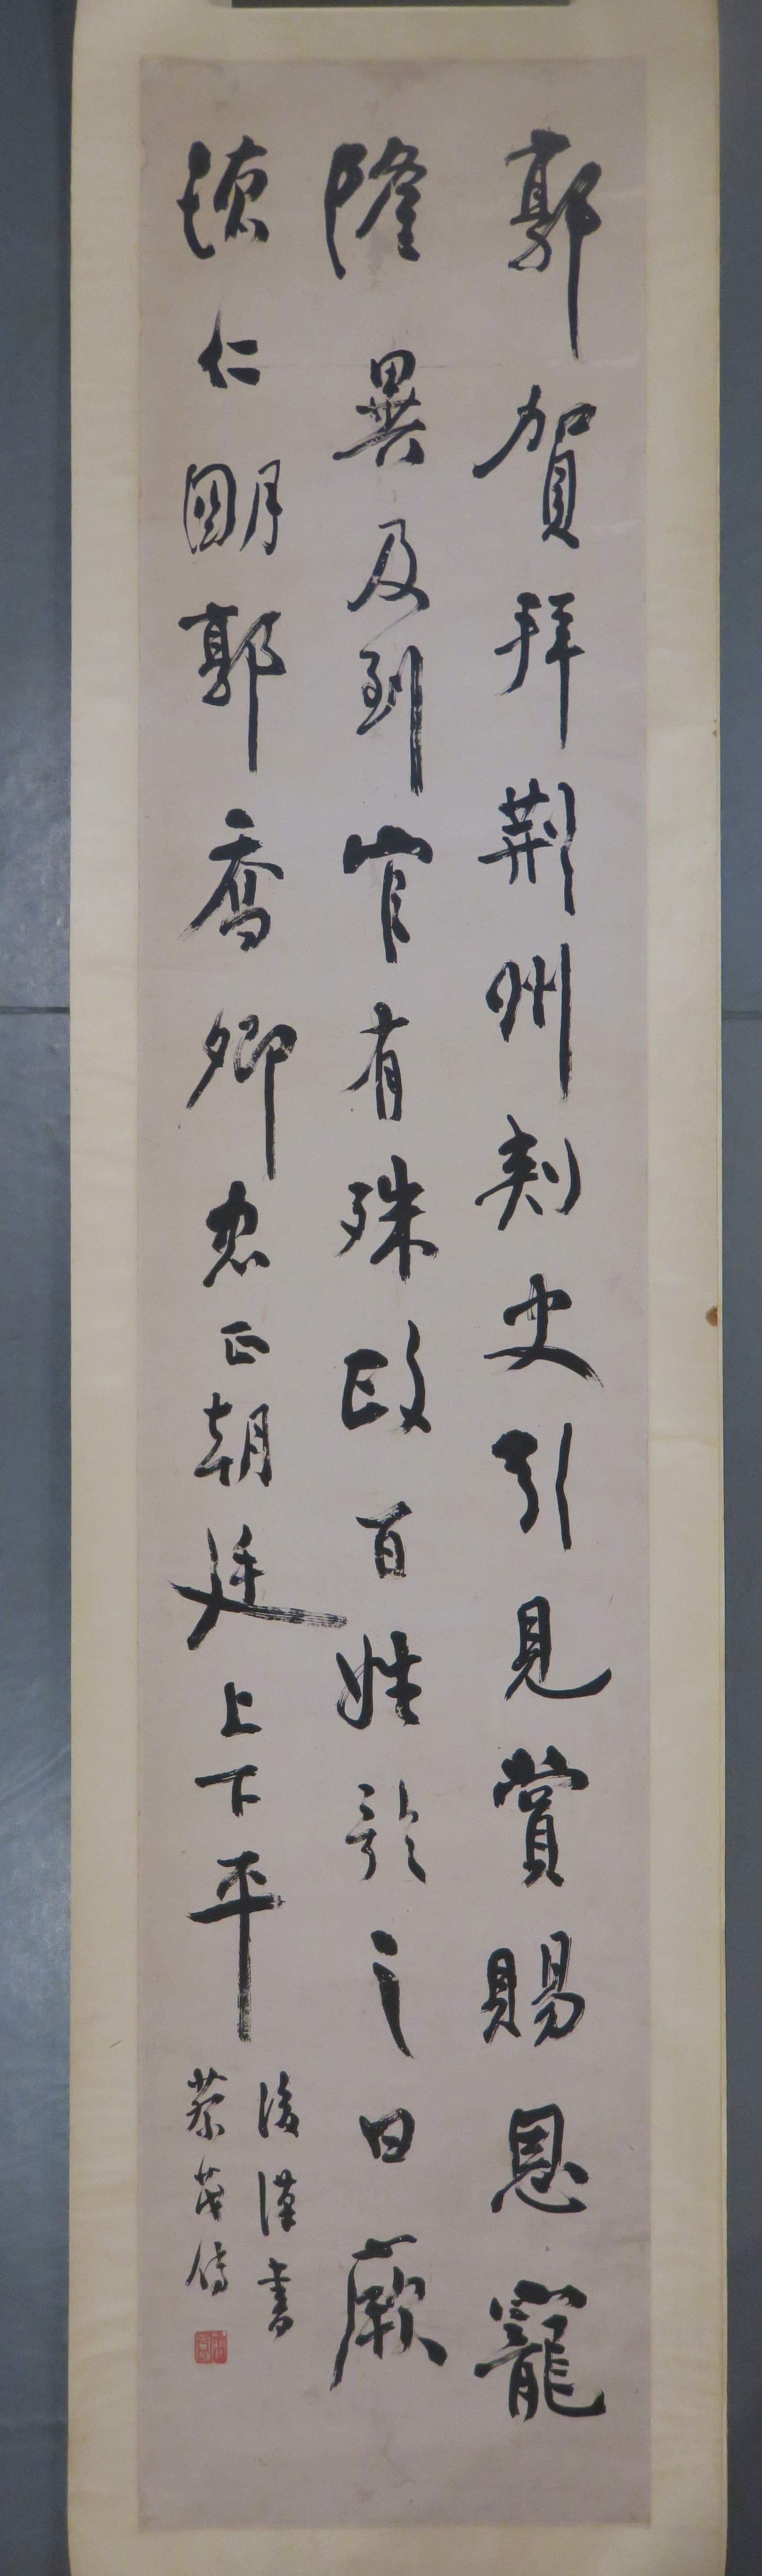 郭賀拜荊州刺史引見賞賜恩寵
隆異及到官有殊政百姓歌之曰厥
德仁明郭喬卿忠正朝廷上下平
後漢書
蔡茂傳